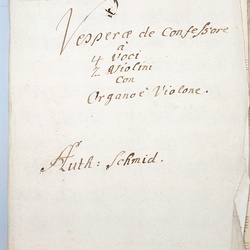 Vesperæ de Confessore
à
4 Voci
2 Violini
con
Organo è Violone.
Auth: Schmid.